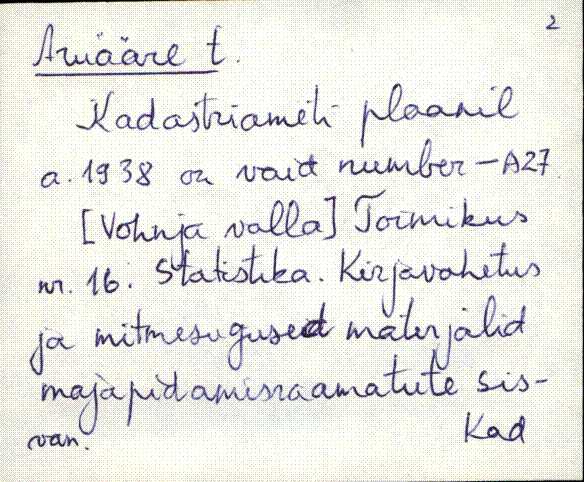 2
Aruääre t.
Kadastriameti plaanil
a. 1938 on vaid number – A27.
[Vohnja valla] Toimikus
nr. 16. Statistika. Kirjavahetus
ja mitmesugused materjalid
majapidamisraamatute sis-
van. Kad